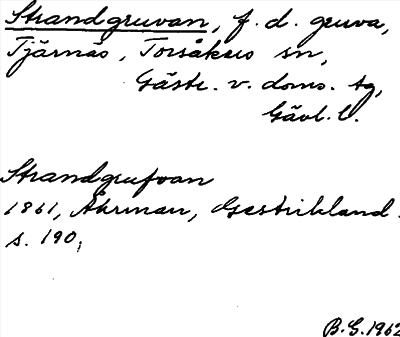 Strandgruvan, f.d. gruva,
Tjärnäs, Torsåkers sn,
Gästr. v. doms. tg,
Gävl. l.
Strandgrufvan
1861, Åhrman, Gestrikland.
s. 190,
B.G. 1962